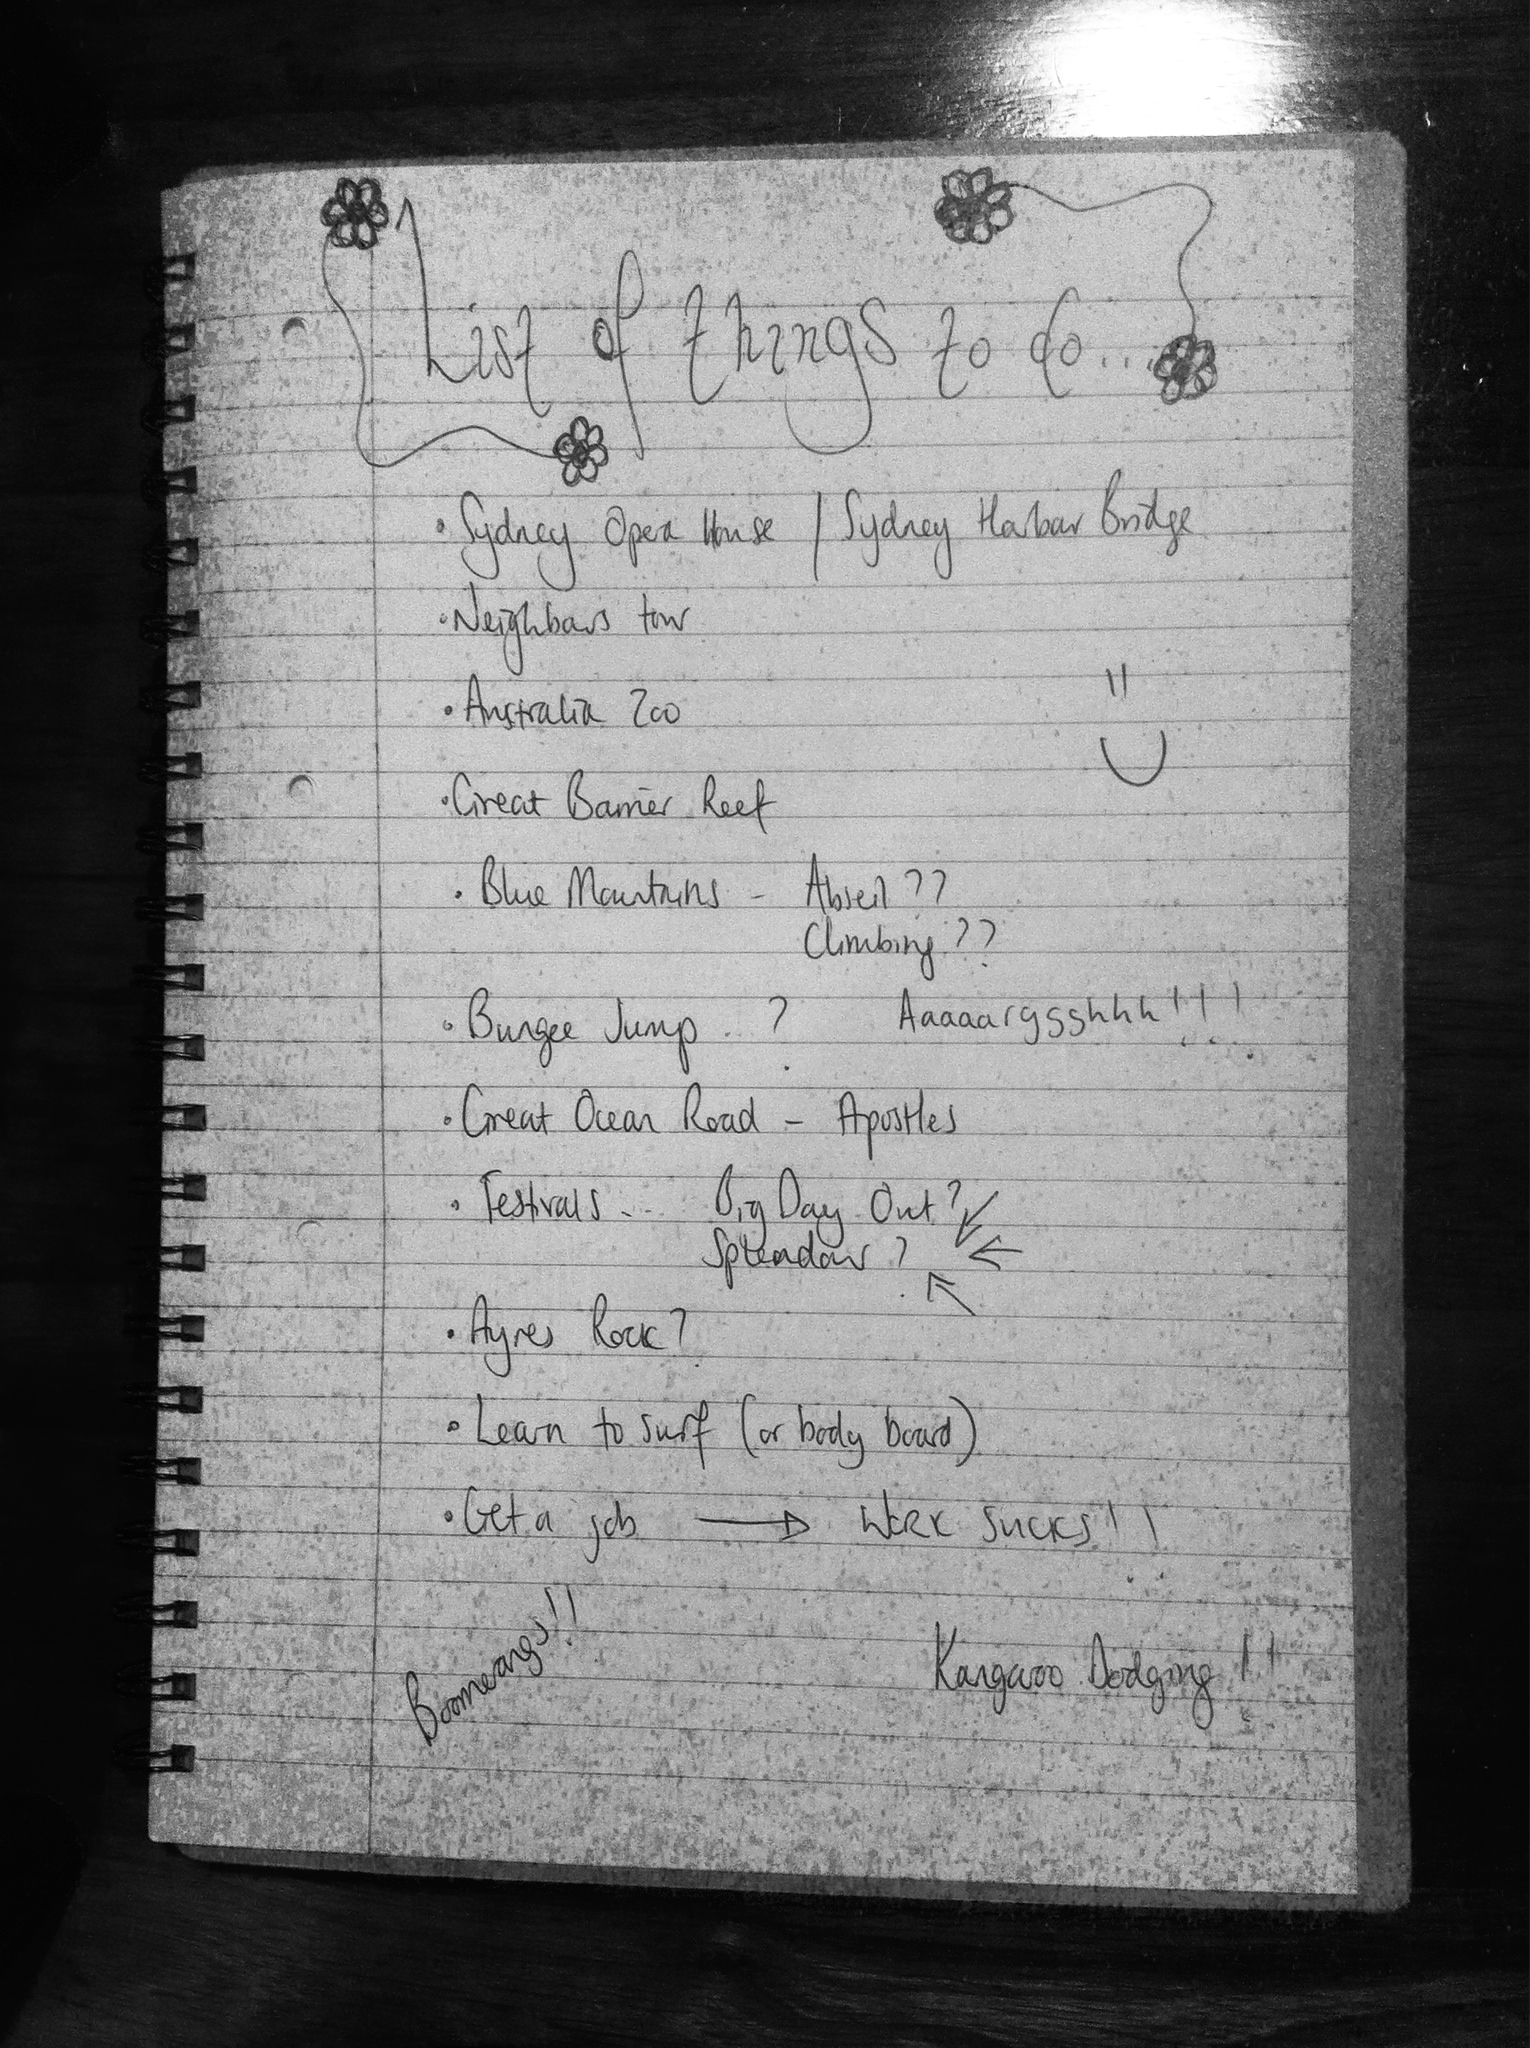 List of things to do....
• Sydney Opera House / Sydney Harbour Bridge
• Neighbours tour
• Australia Zoo
• Great Barrier Reef
• Blue Mountains - Abseil ??
Climbing ??
• Bungee Jump ..? Aaaaargggghhh!!!
• Great Ocean Road - Apostles
• Festivals ... Big Day Out?
Splendour?
• Ayres Rock?
• Learn to surf (or body board)
• Get a job → WORK SUCKS!!
Boomerangs!!
Kangaroo Dodging!!